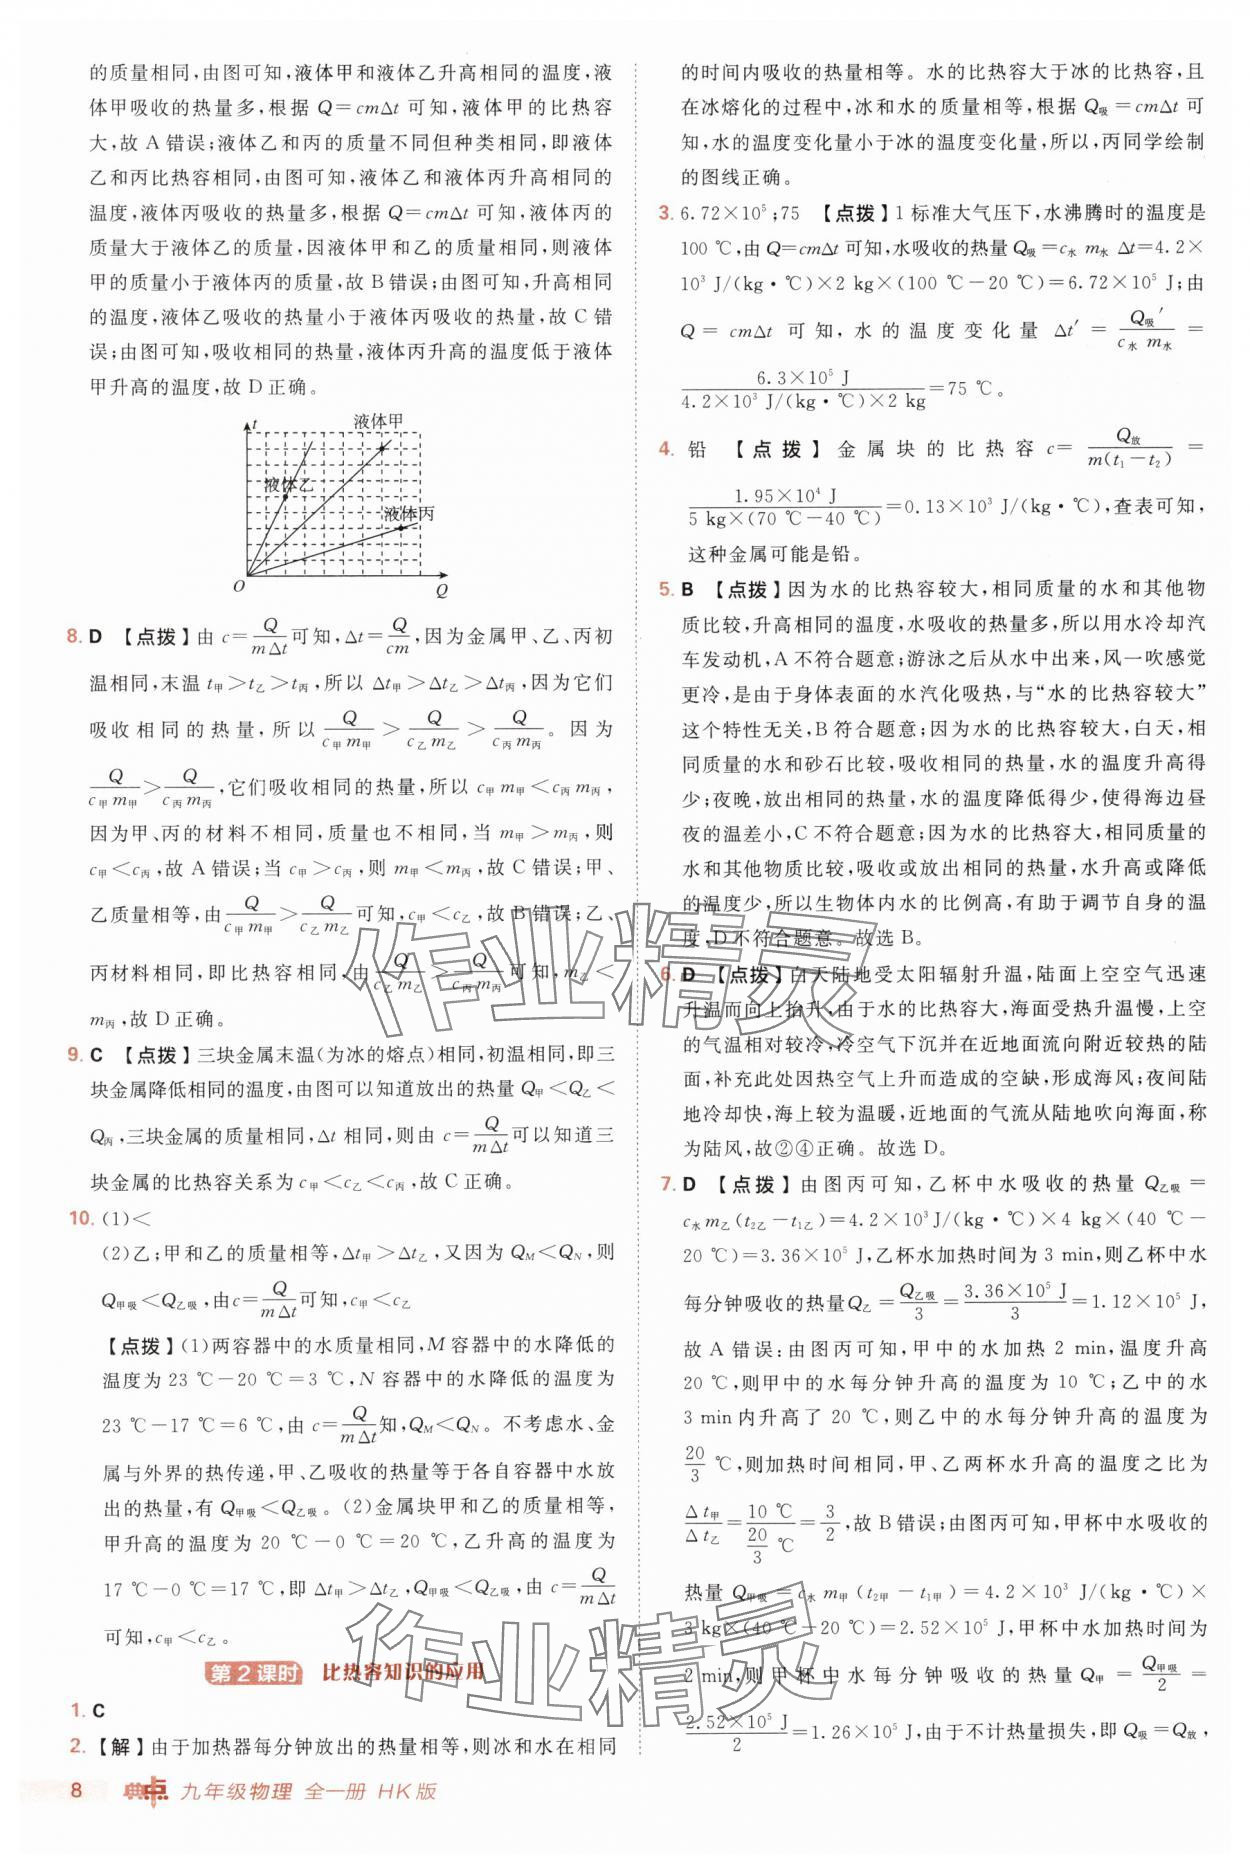 的质量相同，由图可知，液体甲和液体乙升高相同的温度，液
体甲吸收的热量多，根据 Q＝cmΔt 可知，液体甲的比热容
大，故 A 错误；液体乙和丙的质量不同但种类相同，即液体
乙和丙比热容相同，由图可知，液体乙和液体丙升高相同的
温度，液体丙吸收的热量多，根据 Q＝cmΔt 可知，液体丙的
质量大于液体乙的质量，因液体甲和乙的质量相同，则液体
甲的质量小于液体丙的质量，故 B 错误；由图可知，升高相同
的温度，液体乙吸收的热量小于液体丙吸收的热量，故 C 错
误；由图可知，吸收相同的热量，液体丙升高的温度低于液体
甲升高的温度，故 D 正确。
t
液体甲
液体乙
液体丙
O
Q
8. D 【点拨】由 c＝Q/(mΔt)可知，Δt＝Q/(cm)，因为金属甲、乙、丙初
温相同，末温 t甲＞t乙＞t丙，所以 Δt甲＞Δt乙＞Δt丙，因为它们
吸收相同的热量，所以 Q/(c甲m甲)＞Q/(c乙m乙)＞Q/(c丙m丙)。因为
Q/(c甲m甲)＞Q/(c丙m丙)，它们吸收相同的热量，所以 c甲m甲＜c丙m丙，
因为甲、丙的材料不相同，质量也不相同，当 m甲＞m丙，则
c甲＜c丙，故 A 错误；当 c甲＞c丙，则 m甲＜m丙，故 C 错误；甲、
乙质量相等，由Q/(c甲m甲)＞Q/(c乙m乙)可知，c甲＜c乙，故 B 错误；乙、
丙材料相同，即比热容相同，由Q/(c乙m乙)＞Q/(c丙m丙)可知，m乙＜
m丙，故 D 正确。
9. C 【点拨】三块金属末温（为冰的熔点）相同，初温相同，即三
块金属降低相同的温度，由图可以知道放出的热量 Q甲＜Q乙＜
Q丙，三块金属的质量相同，Δt 相同，则由 c＝Q/(mΔt)可以知道三
块金属的比热容关系为 c甲＜c乙＜c丙，故 C 正确。
10. (1)＜
(2)乙；甲和乙的质量相等，Δt甲＞Δt乙，又因为 QM＜QN，则
Q甲吸＜Q乙吸，由c＝Q/(mΔt)可知，c甲＜c乙
【点拨】(1)两容器中的水质量相同，M 容器中的水降低的
温度为 23 ℃－20 ℃＝3 ℃，N 容器中的水降低的温度为
23 ℃－17 ℃＝6 ℃，由 c＝Q/(mΔt)知，QM＜QN。不考虑水、金
属与外界的热传递，甲、乙吸收的热量等于各自容器中水放
出的热量，有 Q甲吸＜Q乙吸。(2)金属块甲和乙的质量相等，
甲升高的温度为 20 ℃－0 ℃＝20 ℃，乙升高的温度为
17 ℃－0 ℃＝17 ℃，即 Δt甲＞Δt乙，Q甲吸＜Q乙吸，由 c＝Q/(mΔt)
可知，c甲＜c乙。
第2课时 比热容知识的应用
1. C
2. 【解】由于加热器每分钟放出的热量相等，则冰和水在相同
的时间内吸收的热量相等。水的比热容大于冰的比热容，且
在冰熔化的过程中，冰和水的质量相等，根据 Q吸＝cmΔt 可
知，水的温度变化量小于冰的温度变化量，所以，丙同学绘制
的图线正确。
3. 6.72×10⁵；75 【点拨】1 标准大气压下，水沸腾时的温度是
100 ℃，由 Q＝cmΔt 可知，水吸收的热量 Q吸＝c水 m水 Δt＝4.2×
10³ J/(kg·℃)×2 kg×(100 ℃－20 ℃)＝6.72×10⁵ J；由
Q＝cmΔt 可知，水的温度变化量 Δt′＝Q吸′/(c水 m水)＝
6.3×10⁵ J/(4.2×10³ J/(kg·℃)×2 kg)＝75 ℃。
4. 铅 【点拨】金属块的比热容 c＝Q放/(m(t₁－t₂))＝
1.95×10⁴ J/(5 kg×(70 ℃－40 ℃))＝0.13×10³ J/(kg·℃)，查表可知，
这种金属可能是铅。
5. B 【点拨】因为水的比热容较大，相同质量的水和其他物
质比较，升高相同的温度，水吸收的热量多，所以用水冷却汽
车发动机，A 不符合题意；游泳之后从水中出来，风一吹感觉
更冷，是由于身体表面的水汽化吸热，与“水的比热容较大”
这个特性无关，B 符合题意；因为水的比热容较大，白天，相
同质量的水和砂石比较，吸收相同的热量，水的温度升高得
少；夜晚，放出相同的热量，水的温度降低得少，使得海边昼
夜的温差小，C 不符合题意；因为水的比热容大，相同质量的
水和其他物质比较，吸收或放出相同的热量，水升高或降低
的温度少，所以生物体内水的比例高，有助于调节自身的温
度，D 不符合题意。故选 B。
6. D 【点拨】白天陆地受太阳辐射升温，陆面上空空气迅速
升温而向上抬升，由于水的比热容大，海面受热升温慢，上空
的气温相对较冷，冷空气下沉并在近地面流向附近较热的陆
面，补充此处因热空气上升而造成的空缺，形成海风；夜间陆
地冷却快，海上较为温暖，近地面的气流从陆地吹向海面，称
为陆风，故②④正确。故选 D。
7. D 【点拨】由图丙可知，乙杯中水吸收的热量 Q乙吸＝
c水m乙(t2乙－t1乙)＝4.2×10³ J/(kg·℃)×4 kg×(40 ℃－
20 ℃)＝3.36×10⁵ J，乙杯水加热时间为 3 min，则乙杯中水
每分钟吸收的热量Q乙＝Q乙吸/3＝3.36×10⁵ J/3＝1.12×10⁵ J，
故 A 错误；由图丙可知，甲中的水加热 2 min，温度升高
20 ℃，则甲中的水每分钟升高的温度为 10 ℃；乙中的水
3 min内升高了 20 ℃，则乙中的水每分钟升高的温度为
20/3 ℃，则加热时间相同，甲、乙两杯水升高的温度之比为
Δt甲/Δt乙＝10 ℃/(20/3 ℃)＝3/2，故 B 错误；由图丙可知，甲杯中水吸收的
热量 Q甲吸＝c水 m甲 (t2甲－t1甲)＝4.2×10³ J/(kg·℃)×
3 kg×(40 ℃－20 ℃)＝2.52×10⁵ J，甲杯水加热时间为
2 min，则甲杯中水每分钟吸收的热量 Q甲＝Q甲吸/2＝
2.52×10⁵ J/2＝1.26×10⁵ J，由于不计热量损失，即 Q吸＝Q放，
作业精灵
作业精灵
8 典中点 九年级物理 全一册 HK版